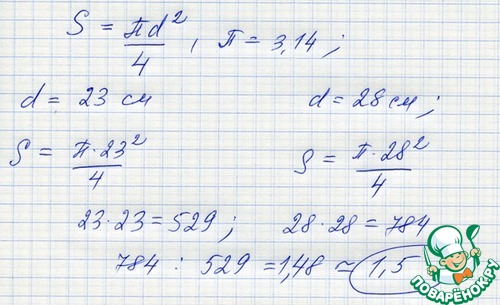 S = πd²/4, π = 3,14;
d = 23 см d = 28 см;
S = π·23²/4 S = π·28²/4
23·23 = 529; 28·28 = 784
784 : 529 = 1,48 ≈ 1,5
ПОВАРЁНОК.РУ